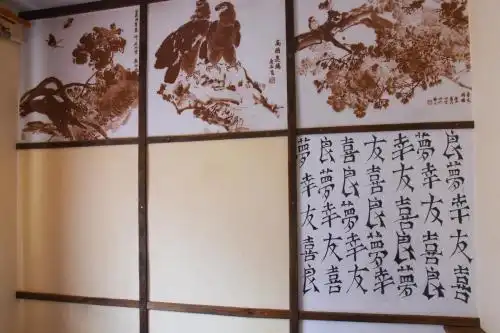 良夢幸友喜
夢幸友喜良
幸友喜良夢
友喜良夢幸
喜良夢幸友
良夢幸友喜
夢幸友喜良